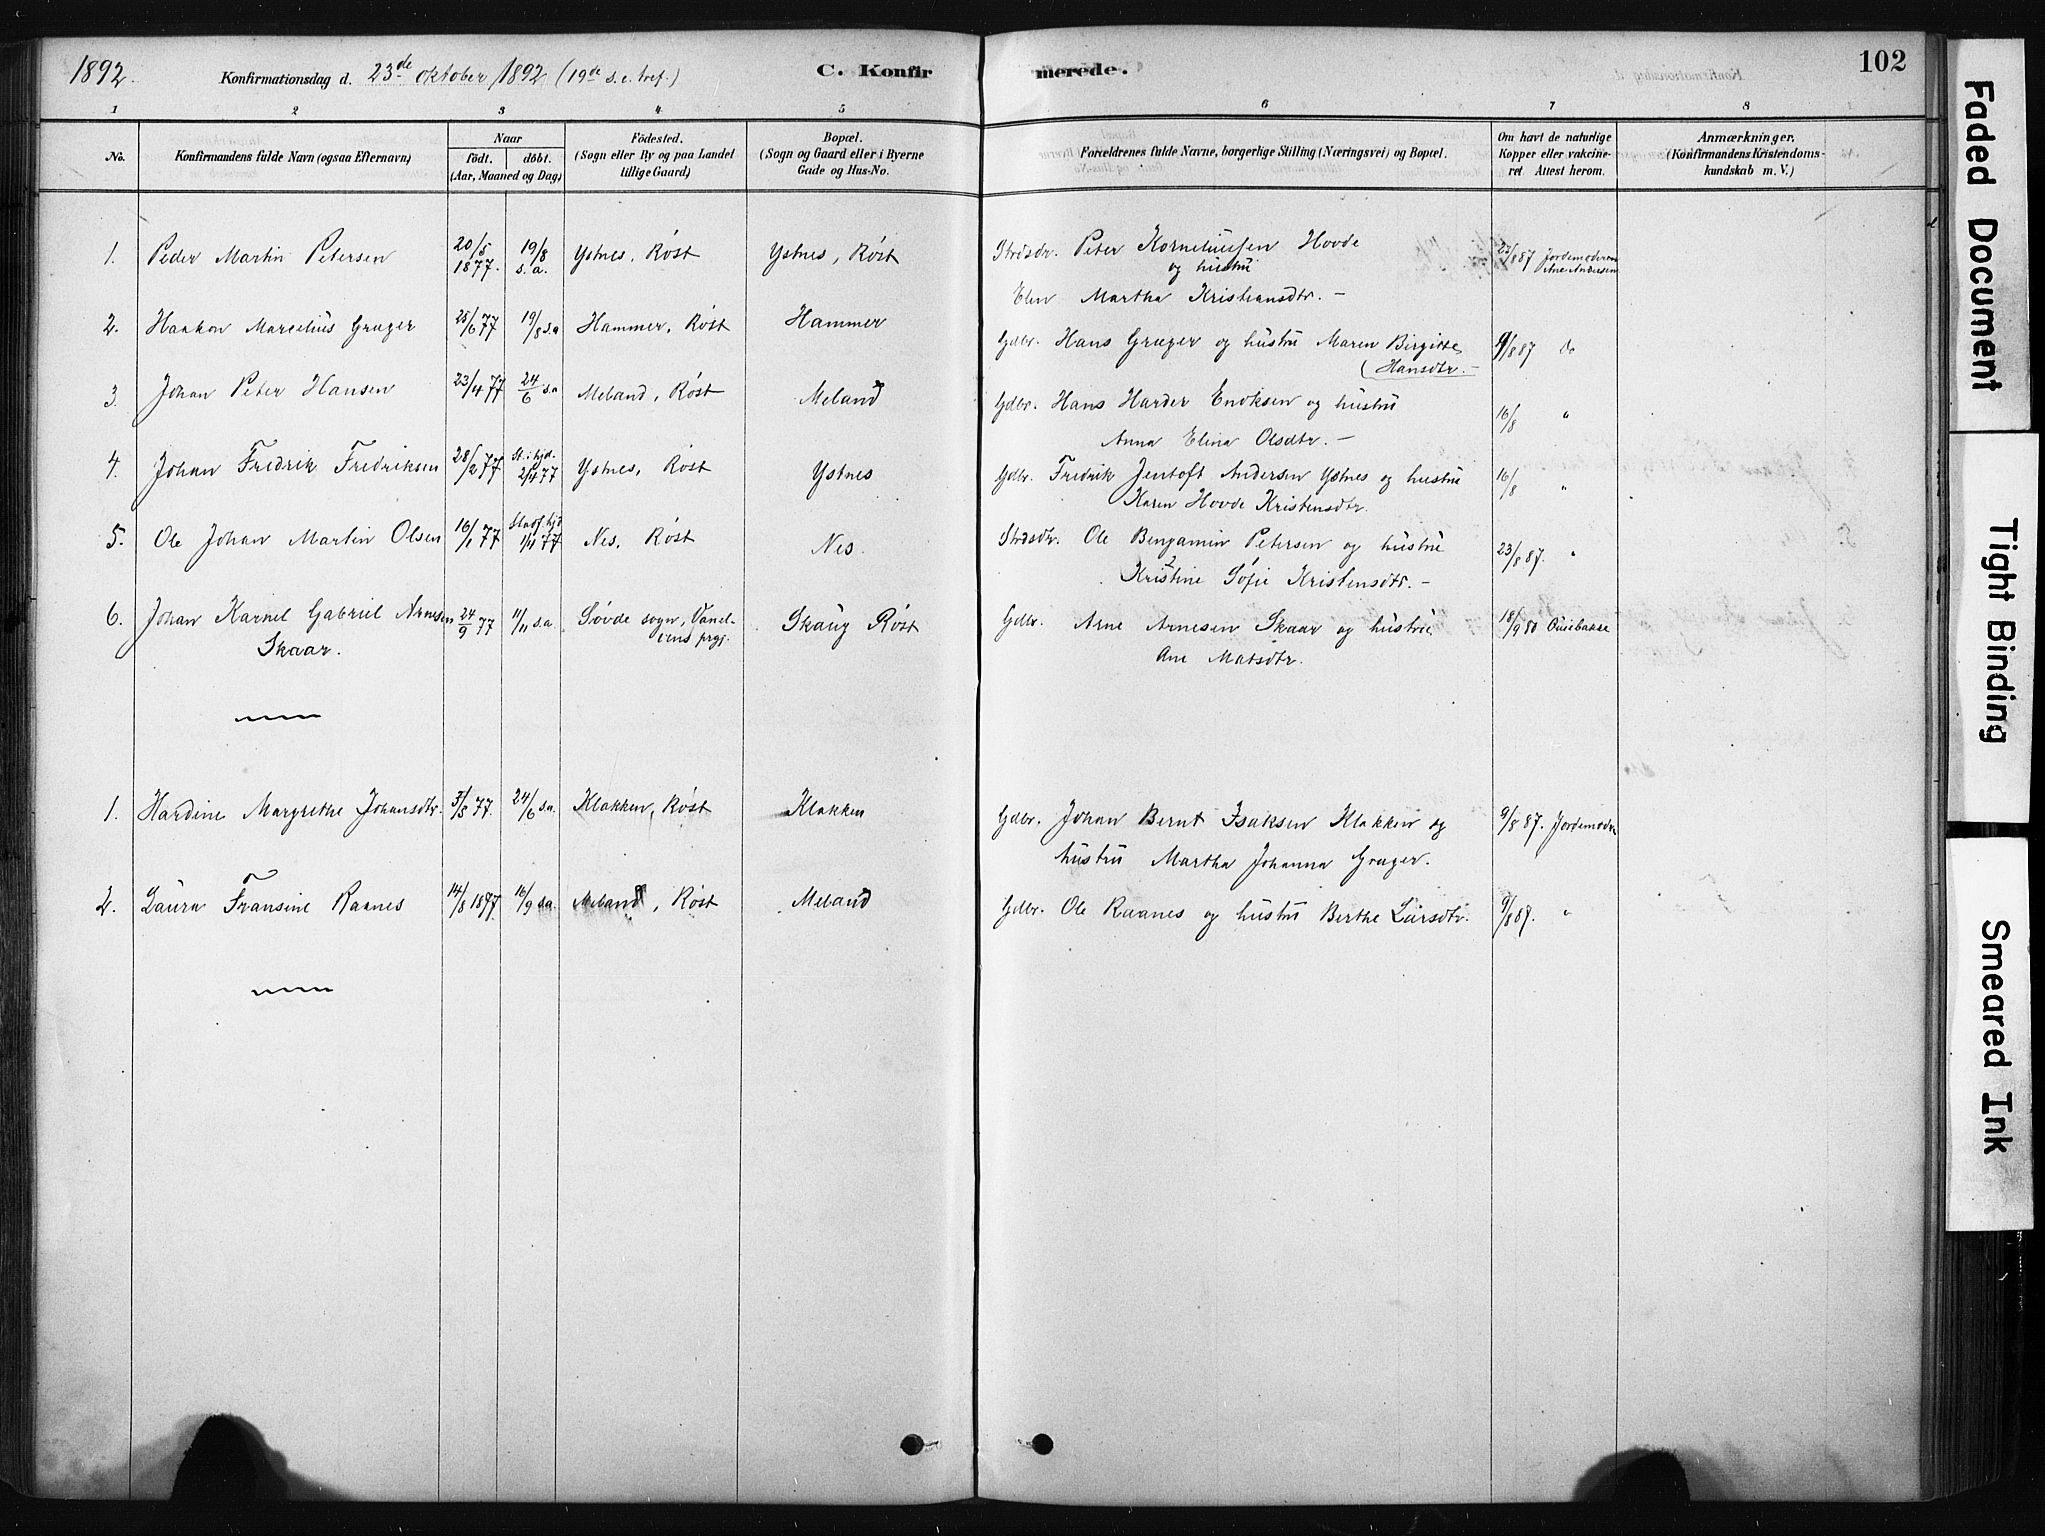 1892. Konfirmationsdag d. 23de oktober 1892 (19de s. e. tref.) C. Konfirmerede. 102
1 2 3 4 5 6 7 8
No. Konfirmandens fulde Navn (ogsaa Efternavn) Naar födt. döbt. (Aar, Maaned og Dag) Födested. (Sogn eller By og paa Landet tillige Gaard) Bopæl. (Sogn og Gaard eller i Byerne Gade og Hus-No. Forældrenes fulde Navne, borgerlige Stilling (Næringsvei) og Bopæl. Om havt de naturlige Kopper eller vakcineret. Attest herom. Anmærkninger. (Konfirmandens Kristendomskundskab m. V.)
1. Peder Martin Petersen 20/5 1877. 19/8 s.a. Ystnes, Röst Ystnes, Röst Strdsdr. Peter Korneliussen Hovde 23/8 87 Jordemoderen Ane Andersen
og hustru
Elen Martha Kristiansdtr. –
2. Haakon Marcelius Grøger 25/6 77 19/8 s.a Hammer, Röst Hammer Gdbr. Hans Grøger og hustru Maren Birgitte 9/8 87 do
(Hansdtr. –
3. Johan Peter Hansen 23/4 77 24/6 s.a Meland, Röst Meland Gdbr. Hans Harder Enoksen og hustru 16/8 "
Anna Elina Olsdtr. –
4. Johan Fredrik Fredriksen 28/2 77 St. i kjd. 2/4 77 Ystnes, Röst Ystnes Gdbr. Fredrik Jentoft Andersen Ystnes og hustru 16/8 "
Karen Hovde Kristensdtr.
5. Ole Johan Martin Olsen 16/1 77 Stadf. kjd 1/4 77 Nes, Röst Nes. Strdsdr. Ole Benjamin Petersen og hustru 23/8 87. "
Kristine Sofie Kristensdtr. –
6. Johan Karnel Gabriel Arnesen 24/9 77 11/11 s.a. Sövde sogn, Vanelvens prgj. Skaug Röst Gdbr. Arne Arnesen Skaar og hustru 18/9 80
Skaar. Ane Matsdtr.
1. Hardine Margrethe Johansdtr. 3/5 77. 24/6 s.a. Klakken, Röst Klakken Gdbr. Johan Bernt Isaksen Klakken og 9/8 87. Jordemodr
hustru Martha Johanna Grøger.
2. Laura Fransine Raanes 14/8 1877 16/9 s.a. Meland, Röst Meland Gdbr. Ole Raanes og hustru Berthe Larsdtr. 9/8 87. "
Faded Document
Tight Binding
Smeared Ink